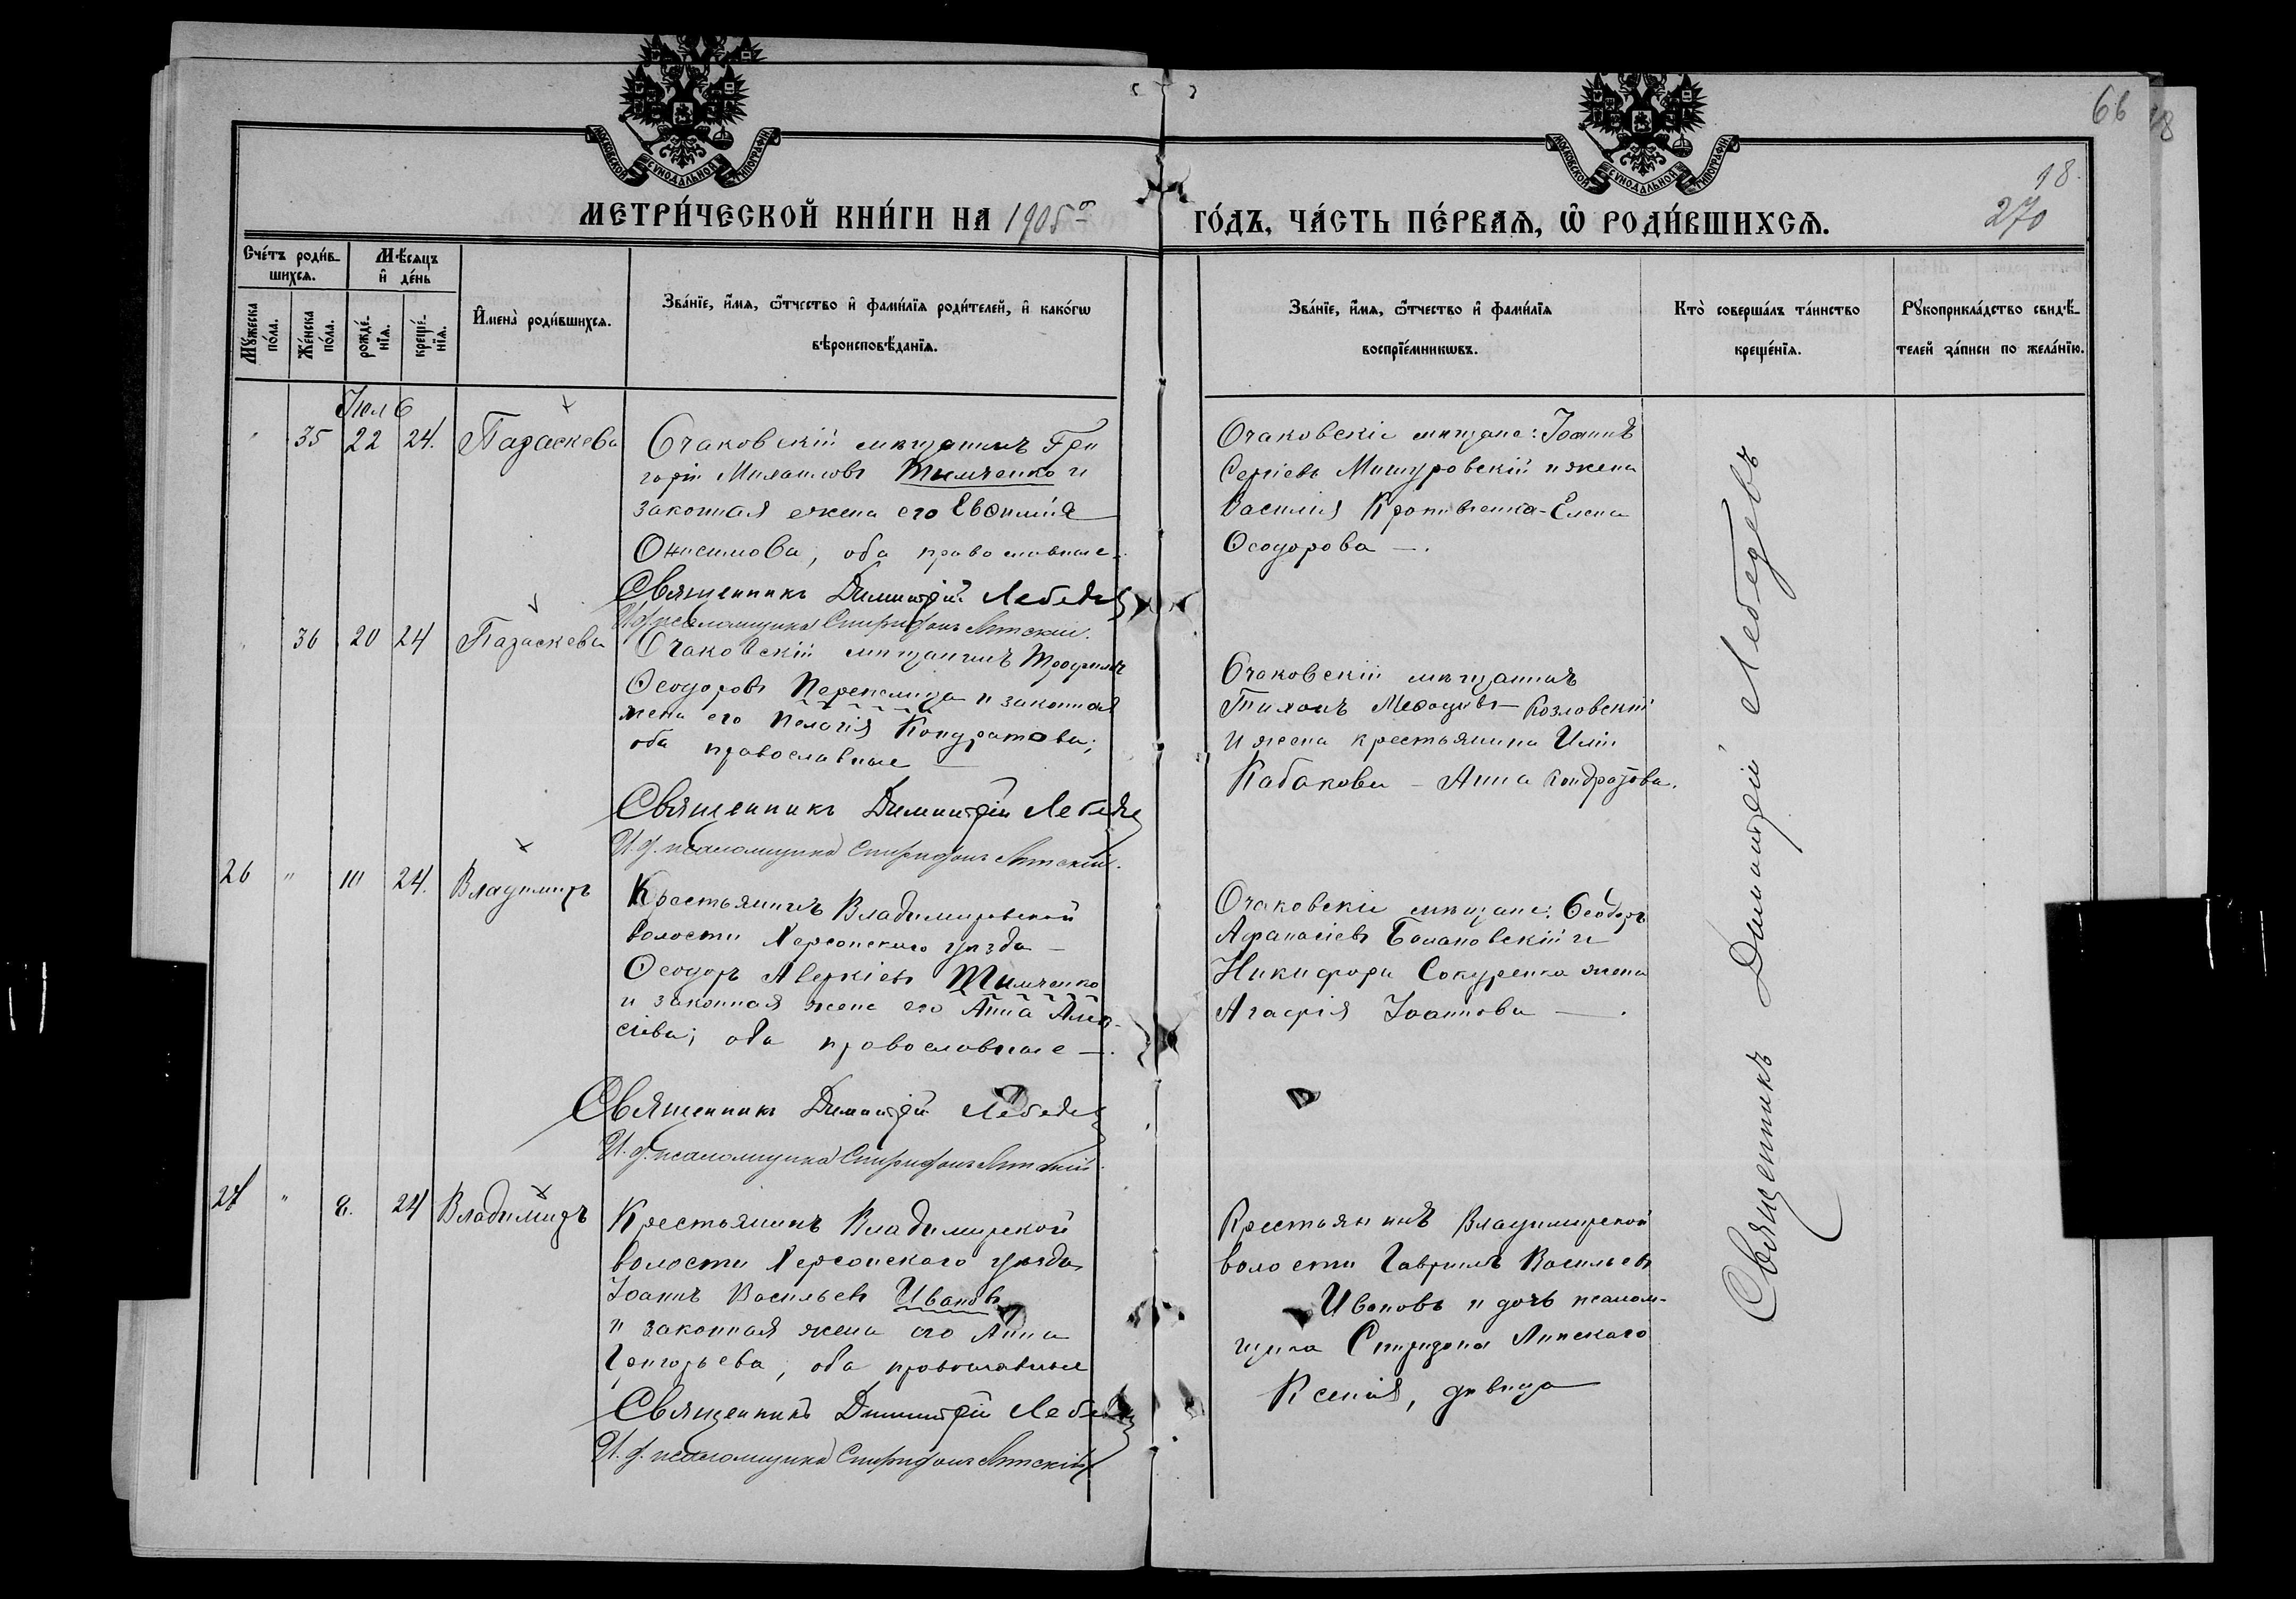 66
18
18.
270
МОСКОВСКОЙ СѴНОДАЛЬНОЙ ТИПОГРАФІИ
МОСКОВСКОЙ СѴНОДАЛЬНОЙ ТИПОГРАФІИ
МЕТРИ́ЧЕСКОЙ КНИ́ГИ НА 1905й
ГО́ДЪ, ЧА́СТЬ ПЕ́РВАѦ, Ѡ҆ РОДИ́ВШИХСѦ.
Сче́тъ роди́в-
шихсѧ.
Мꙋжеска по́ла.
Же́нска по́ла.
Мѣ́сѧцъ
и҆ де́нь
рожде́-
нїѧ.
креще́-
нїѧ.
И҆мена̀ роди́вшихсѧ.
Зва́нїе, и҆́мѧ, ѻ҆́тчество и҆ фами́лїѧ роди́телей, и҆ како́гѡ
вѣроисповѣ́данїѧ.
Зва́нїе, и҆́мѧ, ѻ҆́тчество и҆ фами́лїѧ
воспрїе́мникѡвъ.
Кто̀ соверша́лъ та́инство
креще́нїѧ.
Рꙋкоприкла́дство свидѣ́-
телей за́писи по жела́нїю.
Іюль
" 35 22 24. Параскева
Очаковскій мѣщанинъ Гри
горій Михаиловъ Тимченко и
законная жена его Евѳимія
Онисимова, оба православные.
Священникъ Димитрій Лебедев
И. ф. псаломщика Спиридонъ Липскій.
Очаковскіе мѣщане: Іоаннъ
Сергіевъ Мишуровскій и жена
Василія Кропивенка - Елена
Ѳеодорова —.
" 36 20 24 Параскева
Очаковскій мѣщанинъ Трофимъ
Ѳеодоровъ Перепелица и законная
жена его Пелагія Кондратова;
оба православные
Священникъ Димитрій Лебедев
И. ф. псаломщика Спиридонъ Липскій.
Очаковскій мѣщанинъ
Тихонъ Меѳодіевъ Козловскій
и жена крестьянина Иліи
Кабакова - Анна Кондратова.
26 " 10 24. Владимиръ
Крестьянинъ Владимировской
волости Херсонскаго уѣзда
Ѳеодоръ Аверкіевъ Тимченко
и законная жена его Анна Алек-
сіева; оба православные —.
Священникъ Димитрій Лебедев
И. ф. псаломщика Спиридонъ Липскій.
Очаковскіе мѣщане: Ѳеодоръ
Афанасіевъ Бомановскій и
Никифора Сокуренка жена
Агафія Іоаннова —.
27 " 8. 24 Владимиръ
Крестьянинъ Владимирской
волости Херсонскаго уѣзда
Іоаннъ Васильевъ Ивановъ
и законная жена его Анна
Григорьева, оба православные
Священникъ Димитрій Лебедев
И. ф. псаломщика Спиридонъ Липскій
Крестьянинъ Владимирской
волости Гавриилъ Васильевъ
Ивановъ и дочь псалом-
щика Спиридона Липскаго
Ксенія, дѣвица
Священникъ Димитрій Лебедевъ